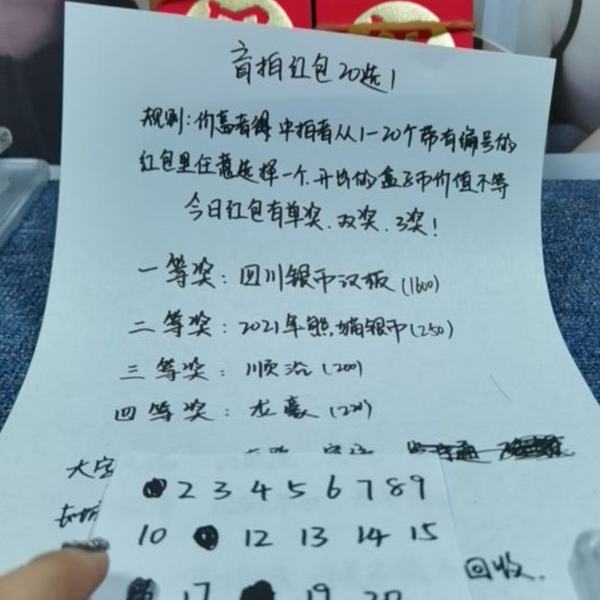 盲拍红包20选1
规则:价高者得 中拍者从1-20个带有编号的
红包里任意选择一个.开出的盒子币价值不等
今日红包有单奖.双奖.3奖!
一等奖:四川银币汉版(1600)
二等奖:2021年熊猫银币(250)
三等奖:顺治(200)
四等奖:龙豪(220)
大字
2 3 4 5 6 7 8 9
10 12 13 14 15
回收.
17 19 20